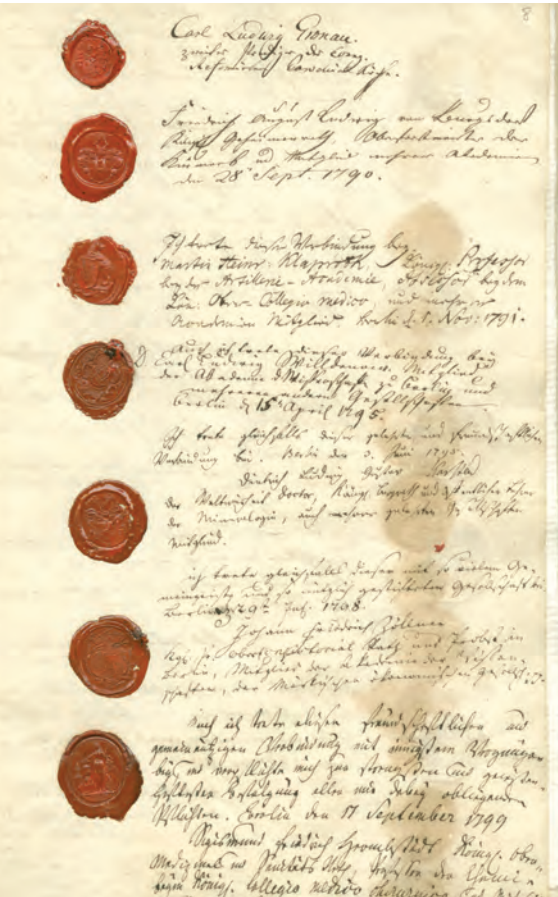 8
Carl Ludwig Gronau.
zweiter Prediger der
Reformirten Parochial Kirche.
Friedrich August Ludwig von Burgsdorf
Königl Geheimerrath, Oberforstmeister der
Kurmark und Mitglied mehrer Akademien
den 28 Sept. 1790.
Ich trete dieser Verbindung bey
Martin Heinr: Klaproth, Königl. Professor
bey der Artillerie-Academie, Assessor bey dem
Kön: Ober-Collegio medico, und mehrer
Academien Mitglied. Berlin d. 1. Nov: 1791.
Auch ich trete dieser Verbindung bei
D. Carl Ludwig Willdenow. Mitglied
der Akademie d Wissenschaft zu Berlin und
mehrerer anderer Gesellschaften
Berlin d 15 April 1795.
Ich trete gleichfalls dieser gelehrten und freundschaftlichen
Verbindung bei. Berlin den 3. Juni 1795.
Dietrich Ludwig Gustav Karsten
der Weltweisheit Doctor, Königl. Bergrath und öffentlicher Lehrer
der Mineralogie, auch mehrer gelehrten Gesellschaften
Mitglied.
ich trete gleichfalls dieser mit so vielem Ge-
meingeiste und so nützlich gestifteten Gesellschaft bei
Berlin 1798.
Johann Friedrich Zöllner
Kgl. Oberconsistorial Rath und Probst in
Berlin, Mitglied der Akademie der Wissen-
schaften, der Märkischen ökonomischen Gesellsch.
Auch ich trete dieser freundschaftlichen und
gemeinnützigen Verbindung mit innigstem Vergnügen
bey, und verpflichte mich zur strengsten und gewissen-
haftesten Befolgung aller mir dabey obliegenden
Pflichten. Berlin den 17 September 1799
Sigismund Friedrich Hermbstädt Königl. Ober-
Medizinal und Sanitäts Rath, Professor der Chemie
beym Königl. Collegio medico chirurgico